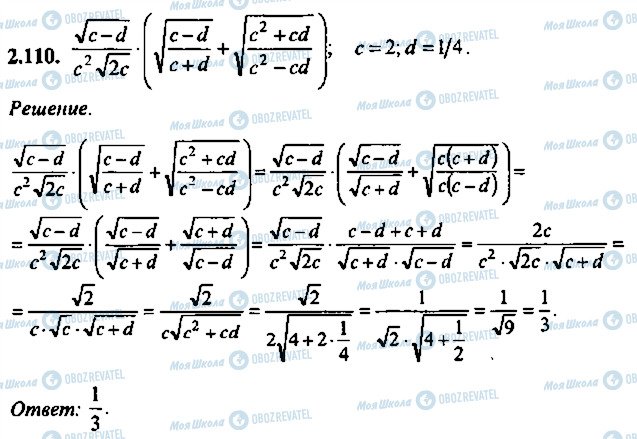 2.110. √(c−d) / (c²√(2c)) · (√((c−d)/(c+d)) + √((c²+cd)/(c²−cd))); c = 2; d = 1/4.
Решение.
√(c−d) / (c²√(2c)) · (√((c−d)/(c+d)) + √((c²+cd)/(c²−cd))) = √(c−d) / (c²√(2c)) · (√(c−d)/√(c+d) + √(c(c+d)/c(c−d))) =
= √(c−d) / (c²√(2c)) · (√(c−d)/√(c+d) + √(c+d)/√(c−d)) = √(c−d) / (c²√(2c)) · (c−d+c+d) / (√(c+d)·√(c−d)) = 2c / (c²·√(2c)·√(c+d)) =
= √2 / (c·√c·√(c+d)) = √2 / (c√(c²+cd)) = √2 / (2√(4+2·1/4)) = 1 / (√2·√(4+1/2)) = 1/√9 = 1/3.
Ответ: 1/3.
Моя Школа OBOZREVATEL